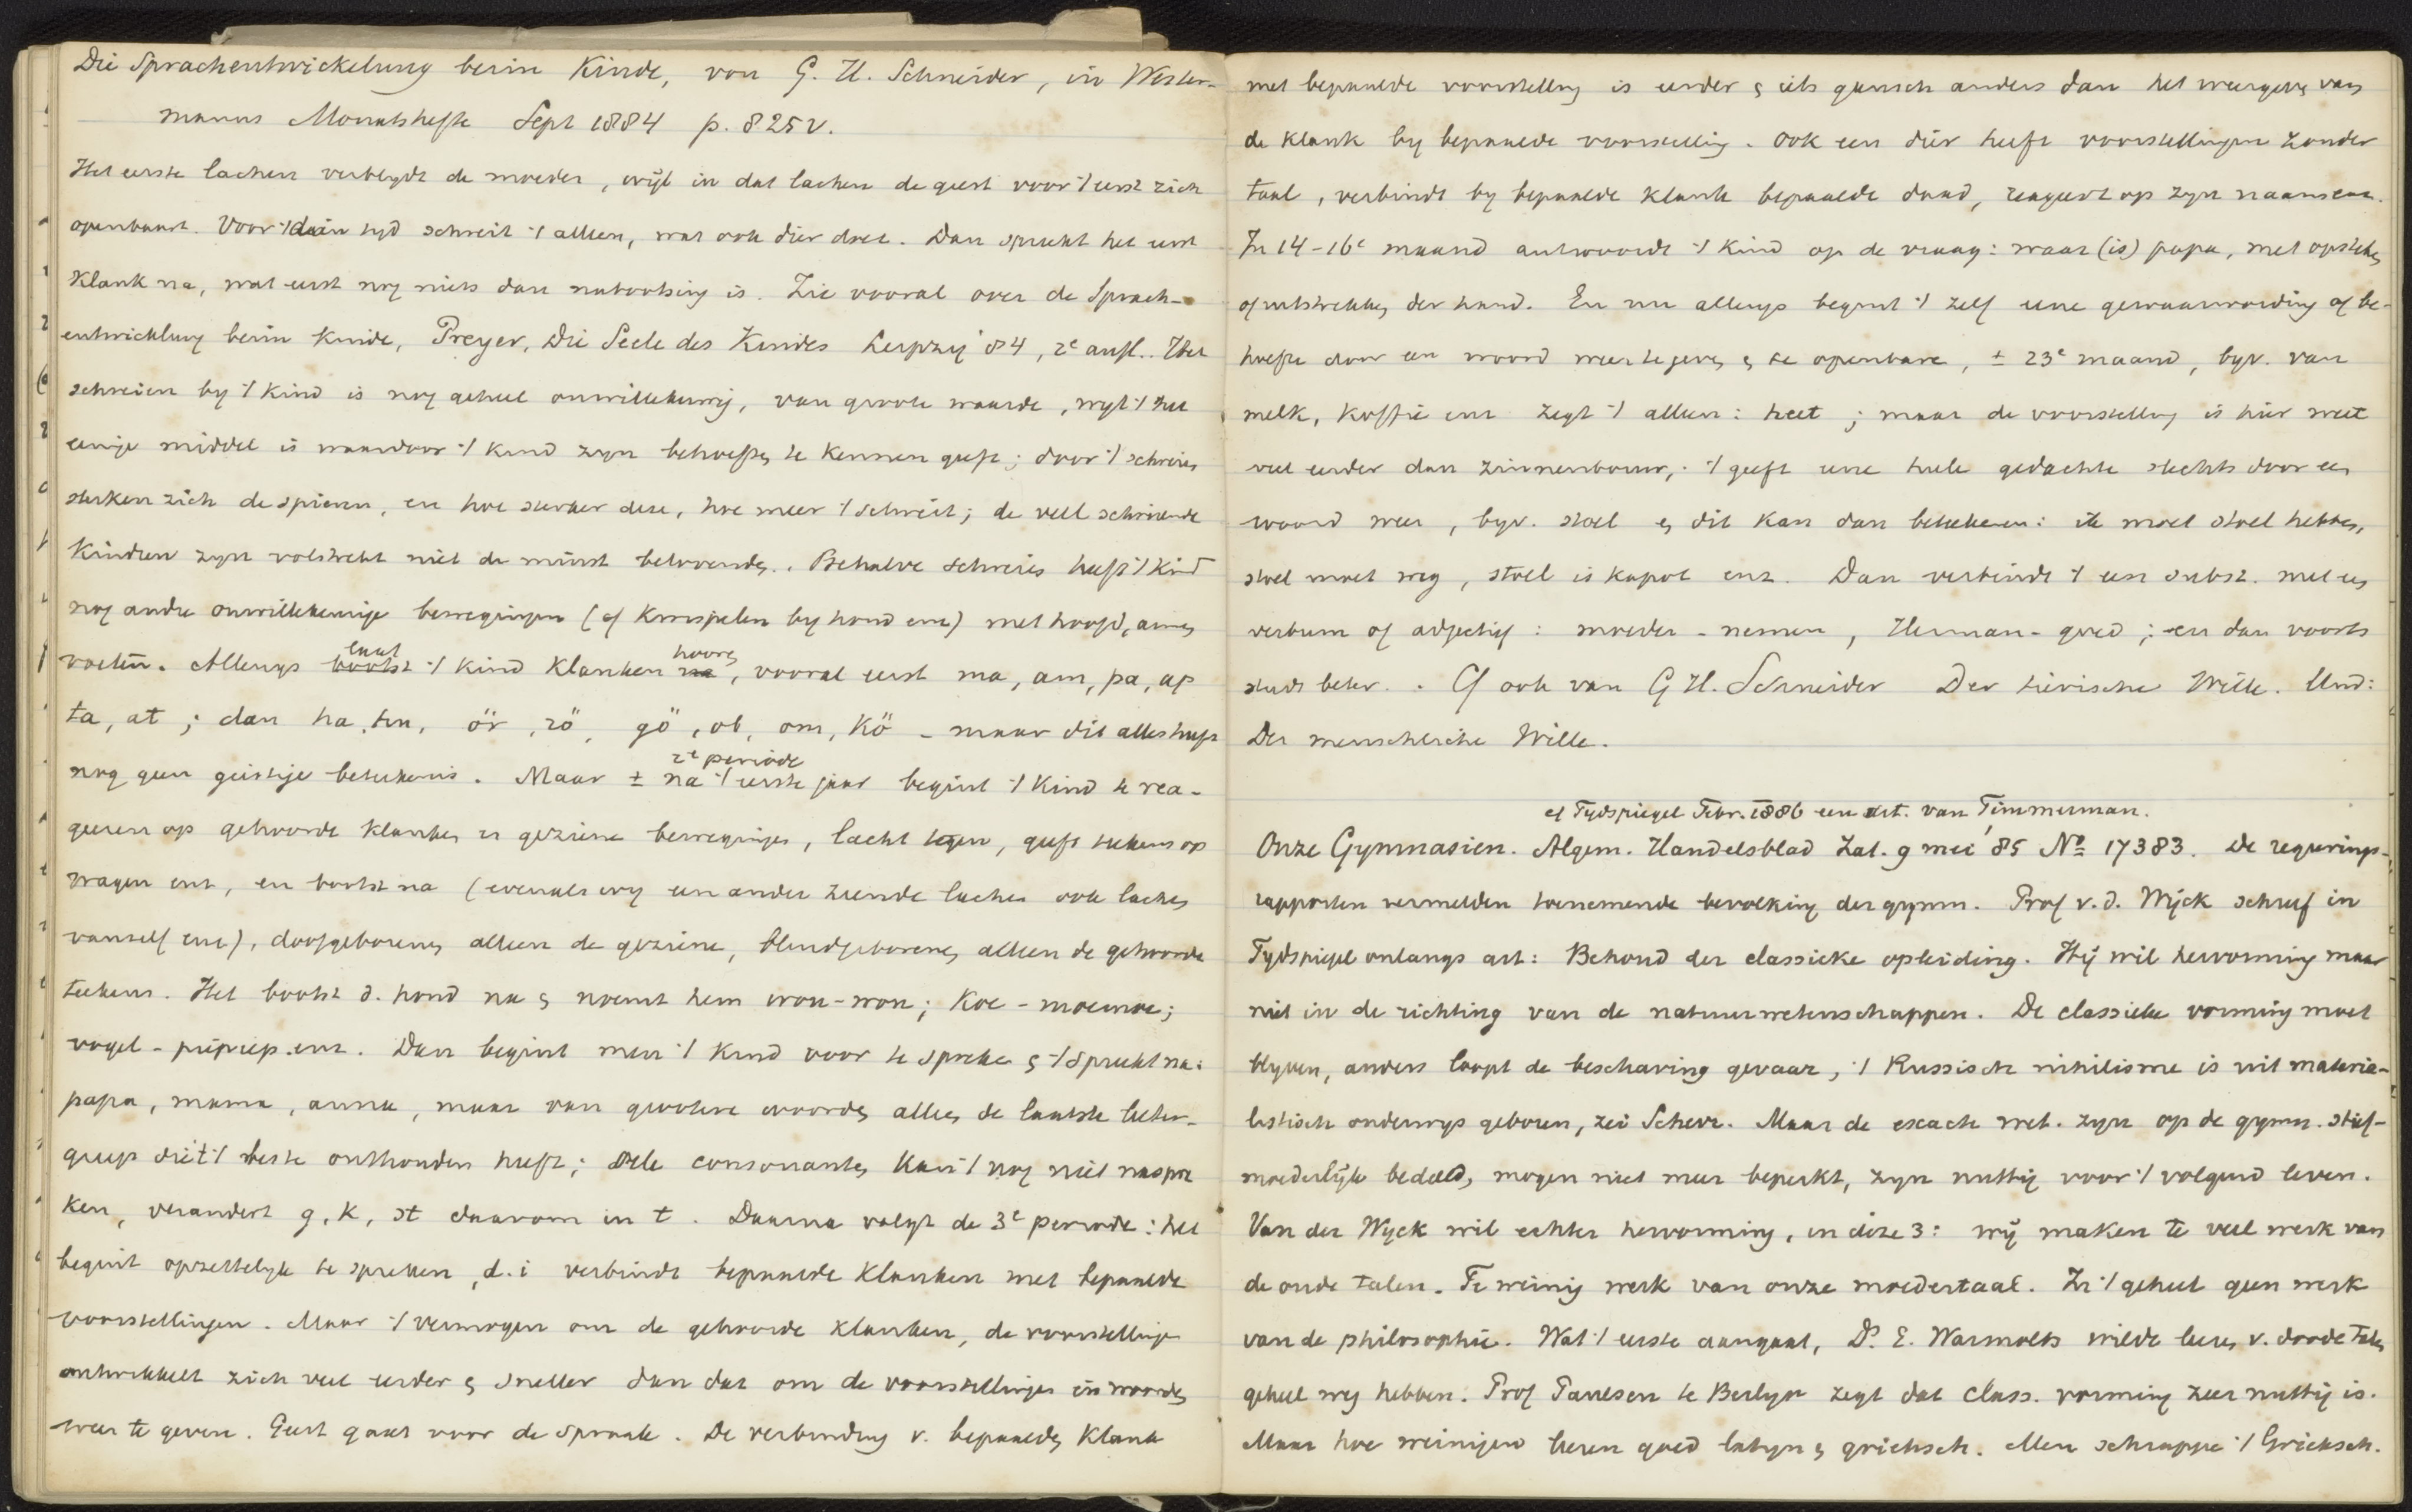 Die Sprachentwickelung beim Kinde, von G. H. Schneider, in Wester-
manns Monatshefte Sept 1884 p. 825v.
Het eerste lachen verblydt de moeder, wijl in dat lachen de geest voor 't eerst zich
openbaart. Voor dien tyd schreit 't alleen, wat ook dier doet. Dan spreekt het eerst
klank na, wat eerst nog niets dan nabootsing is. Zie vooral over de Sprach-
entwicklung beim Kinde, Preyer, Die Seele des Kindes Leipzig 84, 2e aufl.. Het
schreien by 't kind is nog geheel onwillekeurig, van groote waarde, wyl 't het
eenige middel is waardoor 't kind zyn behoeften te kennen geeft; door 't schreien
sterken zich de spieren, en hoe sterker deze, hoe meer 't schreit; de veel schreiende
kindren zyn volstrekt niet de minst belovende. Behalve schreien heeft 't kind
nog andre onwillekeurige bewegingen (cf kwispelen by hond enz) met hoofd, armen
voeten. Allengs laat bootst 't kind klanken hooren na, vooral eerst ma, am, pa, ap
ta, at; dan ha, hu, ör, rö, gö, ob, om, kö - maar dit alles heeft
nog geen geistige beteekenis. Maar ± na 't eerste jaar begint 't kind te rea-
2e periode
geeren op gehoorde klanken en geziene bewegingen, lacht tegen, geeft teekens op
vragen enz, en bootst na (evenals wy een ander ziende lachen ook lachen
vanself enz), doofgeborenen alleen de geziene, blindgeborenen alleen de gehoorde
teekens. Het bootst d. hond na en noemt hem wou-wou; Koe - moemoe;
vogel - piepiep. enz. Dan begint men 't kind voor te spreken en 't spreekt na:
papa, mama, anna, maar van grootere woorden alleen de laatste letter-
greep die 't beste onthouden heeft; vele consonanten kan 't nog niet naspre
ken, verandert g, k, st daarom in t. Daarna volgt de 3e periode: het
begint opzettelyk te spreken, d.i verbindt bepaalde klanken met bepaalde
voorstellingen. Maar 't vermogen om de gehoorde klanken, de voorstellinge
ontwikkelt zich veel eerder en sneller dan dat om de voorstellingen in woorden
weer te geven. Geest gaat voor de spraak. De verbinding v. bepaalde klank
met bepaalde voorstelling is eerder en iets gansch anders dan het weergeven van
de klank by bepaalde voorstelling. Ook een dier heeft voorstellingen zonder
taal, verbindt by bepaalde klank bepaalde daad, reageert op zyn naam enz.
In 14-16e maand antwoordt 't kind op de vraag: waar (is) papa, met opsteken
of uitstrekken der hand. En nu allengs begint 't zelf eene gewaarwording of be-
hoefte door een woord weer te geven en te openbaren, ± 23e maand, byv. van
melk, koffie enz zegt 't alleen: heet; maar de voorstelling is hier weer
veel eerder dan zinnenbouw; 't geeft eene heele gedachte slechts door een
woord weer, byv. stoel en dit kan dan beteekenen: ik moet stoel hebben,
stoel moet weg, stoel is kapot enz. Dan verbindt 't een subst. met een
verbum of adjectief: moeder - nemen, Herman - goed; en dan voorts
steeds beter.. Cf ook van G H. Schneider Der tierische Wille. Und:
Der menschliche Wille.
cf Tydspiegel Febr. 1886 een art. van Timmerman.
Onze Gymnasien. Algem. Handelsblad Zat. 9 mei '85 No 17383. De regeerings-
rapporten vermelden toenemende bevolking der gymn. Prof v. d. Wijck schreef in
Tydspiegel onlangs art: Behoud der classieke opleiding. Hij wil hervorming maar
niet in de richting van de natuurwetenschappen. De classieke vorming moet
blyven, anders loopt de beschaving gevaar, 't Russisch nihilisme is uit materia-
listisch onderwys geboren, zei Scherr. Maar de exacte wet. zyn op de gymn. stief-
moederlijk bedeeld, mogen niet meer beperkt, zyn nuttig voor 't volgend leven.
Van der Wyck wil echter hervorming, in deze 3: wij maken te veel werk van
de oude talen. Te weinig werk van onze moedertaal. In 't geheel geen werk
van de philosophie. Wat 't eerste aangaat, Dr. E. Warmolts wilde leeren v. doode talen
geheel weg hebben. Prof Paulsen te Berlyn zegt dat class. vorming zeer nuttig is.
Maar hoe weinigen leeren goed latyn en grieksch. Men schrappe 't Grieksch.